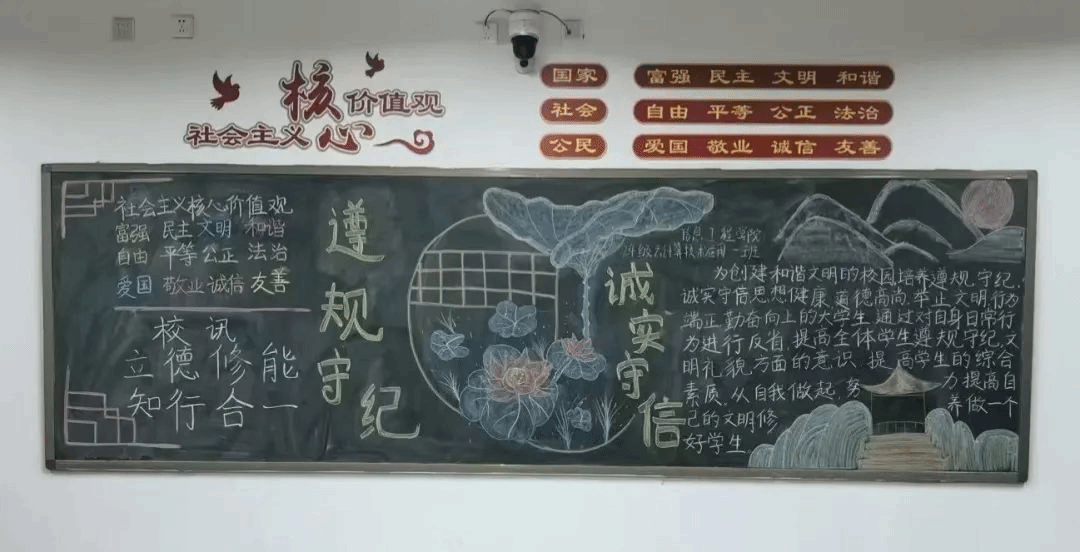 社会主义核心价值观
国家 富强 民主 文明 和谐
社会 自由 平等 公正 法治
公民 爱国 敬业 诚信 友善
社会主义核心价值观
富强 民主 文明 和谐
自由 平等 公正 法治
爱国 敬业 诚信 友善
校讯
立德修能
知行合一
遵规守纪
诚实守信
信息工程学院
级云计算技术应用一班
为创建和谐文明的校园培养遵规守纪,
诚实守信思想健康,道德高尚,举止文明行为
端正勤奋向上的大学生,通过对自身日常行
为进行反省,提高全体学生遵规守纪,文
明礼貌方面的意识,提高学生的综合
素质。从自我做起,努 为提高自
己的文明修 养做一个
好学生。